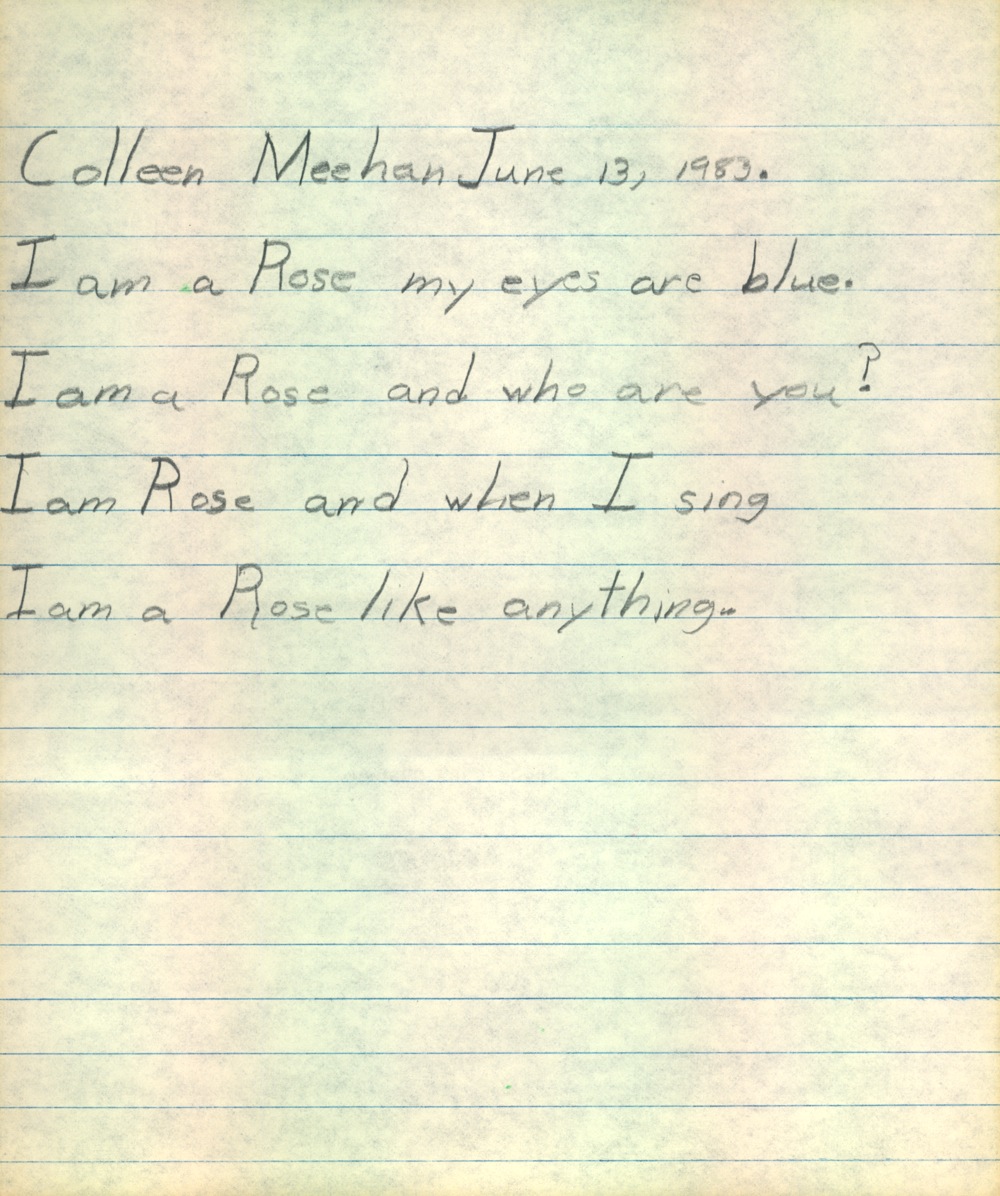 Colleen Meehan June 13, 1983.
I am a Rose my eyes are blue.
I am a Rose and who are you?
I am Rose and when I sing
I am a Rose like anything..